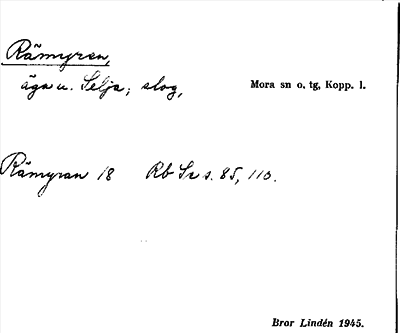 Rämyran,
äga u. Selja; slog, Mora sn o. tg, Kopp. l.
Rämyran 18 Rb Sr s. 85, 110.
Bror Lindén 1945.